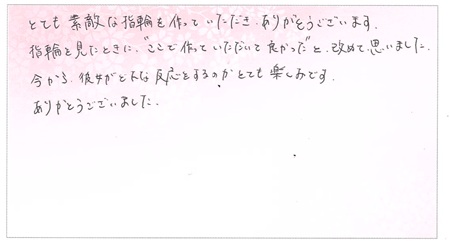 とても素敵な指輪を作っていただき、ありがとうございます.
指輪を見たときに、"ここで作っていただいて良かった"と、改めて思いました.
今から、彼女がどんな反応をするのかとても楽しみです.
ありがとうございました.